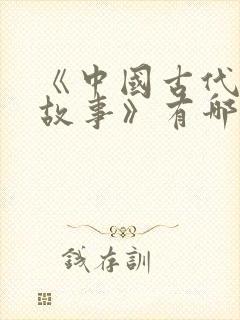 《中國古代
故事》有哪
錢存訓